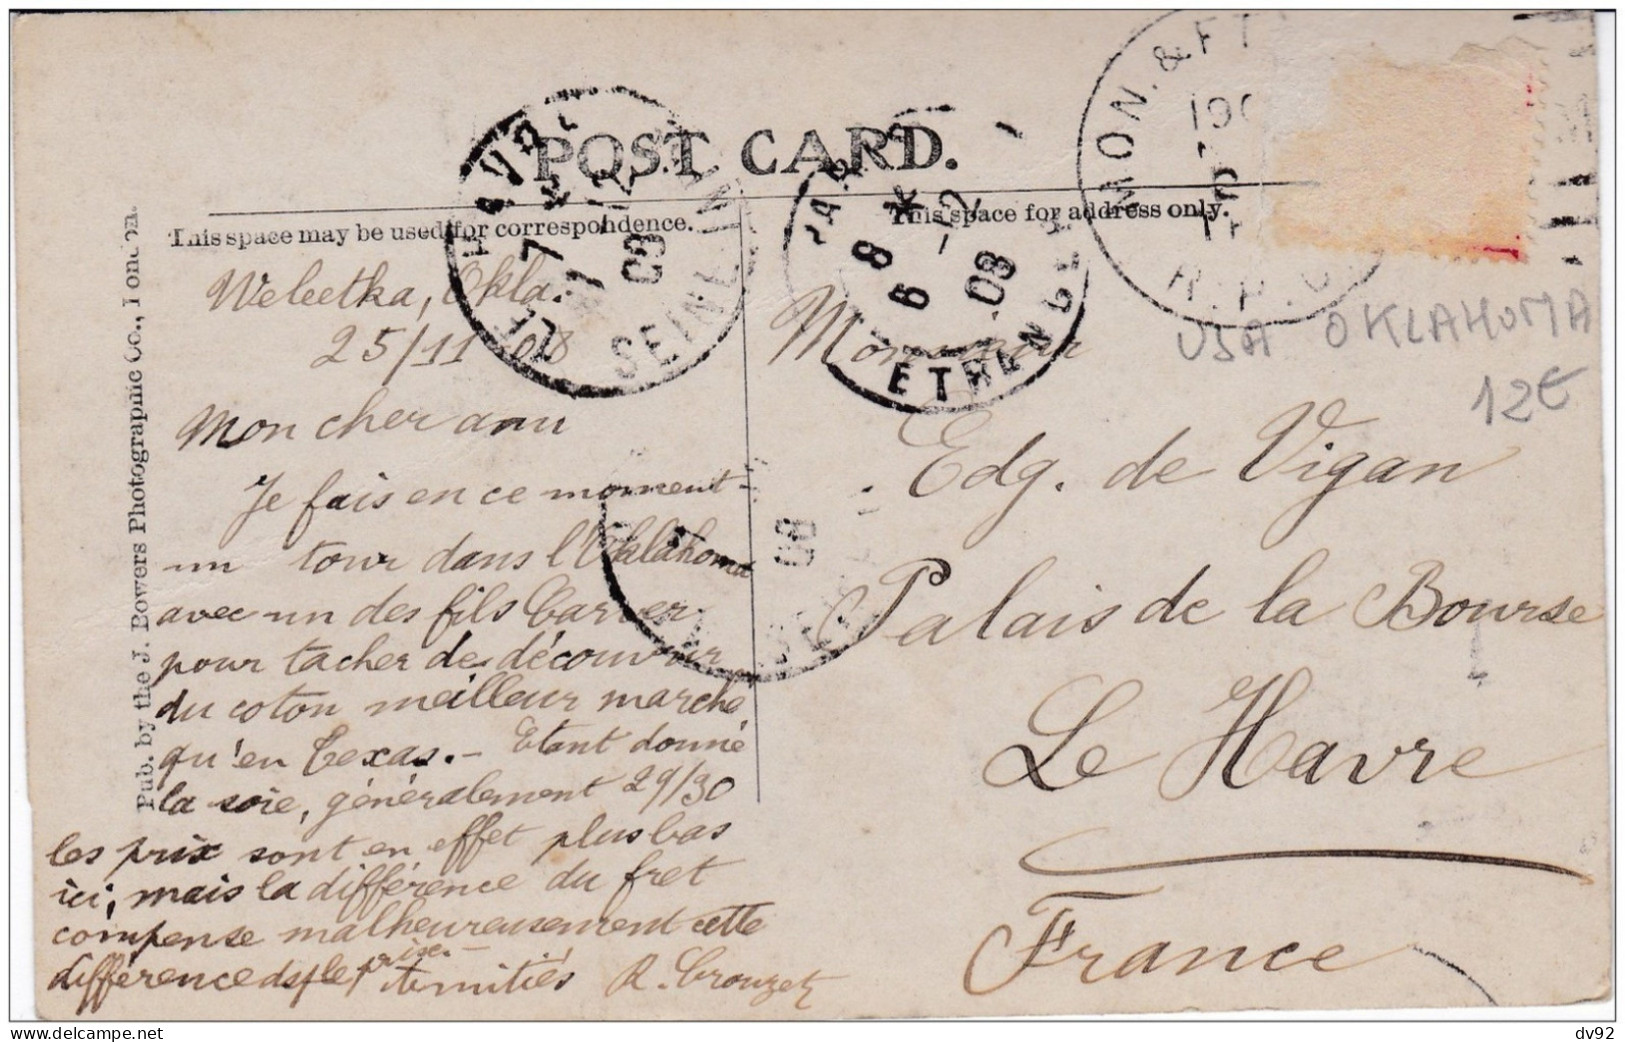 POST CARD.
This space may be used for correspondence.
This space for address only.
Pub. by the J. Bowers Photographic Co., London.
MON. & FT
R.P.O
SEINE IN
08
ETR
08
08
USA OKLAHOMA
12€
Weleetka, Okla.
25/11 08
Mon cher ami
Je fais en ce moment
un tour dans l'Oklahoma
avec un des fils Carver
pour tacher de découvrir
du coton meilleur marché
qu'en Texas. – Etant donné
la soie, généralement 29/30
les prix sont en effet plus bas
ici, mais la différence du fret
compense malheureusement cette
différence de prix.–
le
Amitiés R. Crouzet
Monsieur
Edg. de Vigan
Palais de la Bourse
Le Havre
France
dv92